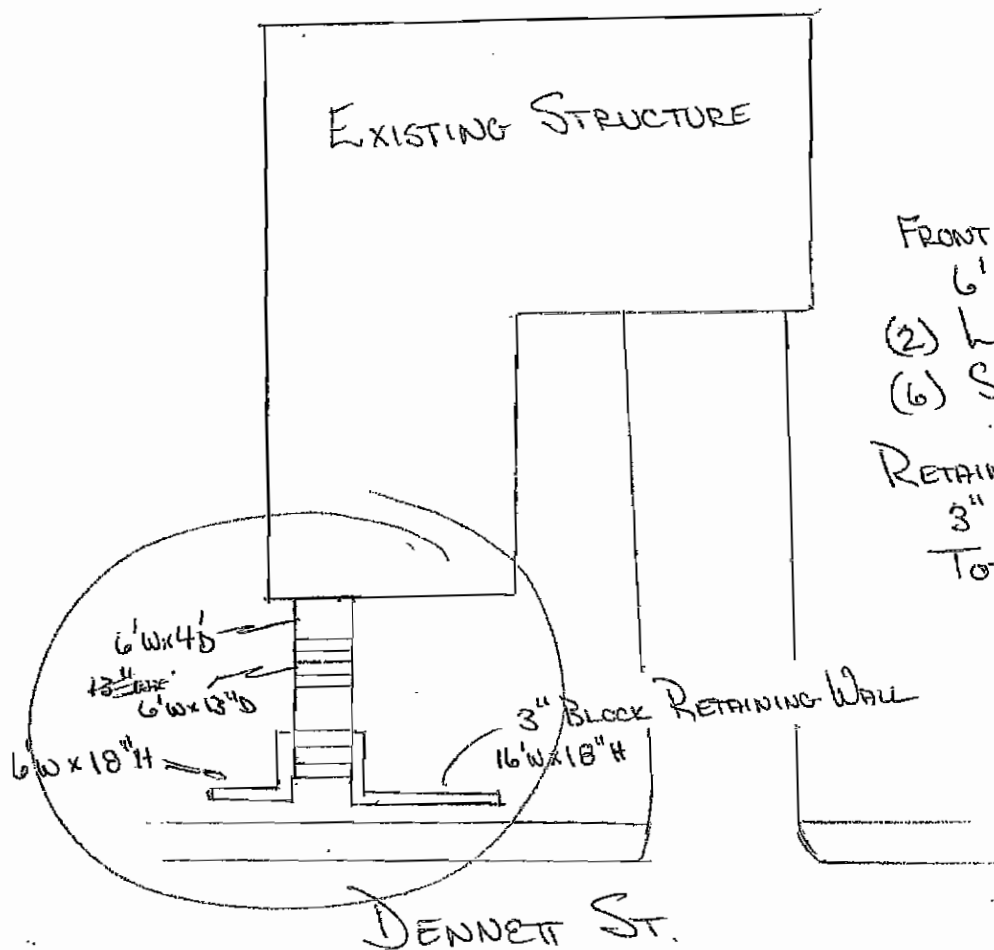 EXISTING STRUCTURE
FRONT
6'
(2) L
(6) S
RETAIN
3"
TOT
6'W x 4'D
13"
6'W x 13"D
6'W x 18"H
3" BLOCK RETAINING WALL
16'W x 18"H
DENNETT ST.